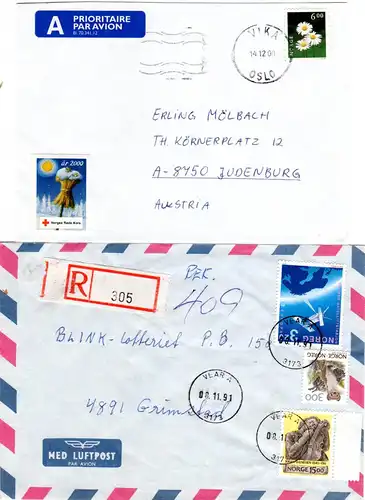 A PRIORITAIRE
PAR AVION
Bl. 70 341.12
VIKA
14.12.00
OSLO
6.00
NORGE
ERLING MÖLBACH
TH. KÖRNERPLATZ 12
A-8750 JUDENBURG
AUSTRIA
år 2000
Norges Røde Kors
R
305
REK.
409
BLINK-Lotteriet P.B. 150
4891 Grimstad
VEAR A
08.11.91
3173
NOREG
3.20
VEAR A
08.11.91
3173
NORGE NOREG
300
VEAR A
3173
NORGE 15.00
MED LUFTPOST
PAR AVION